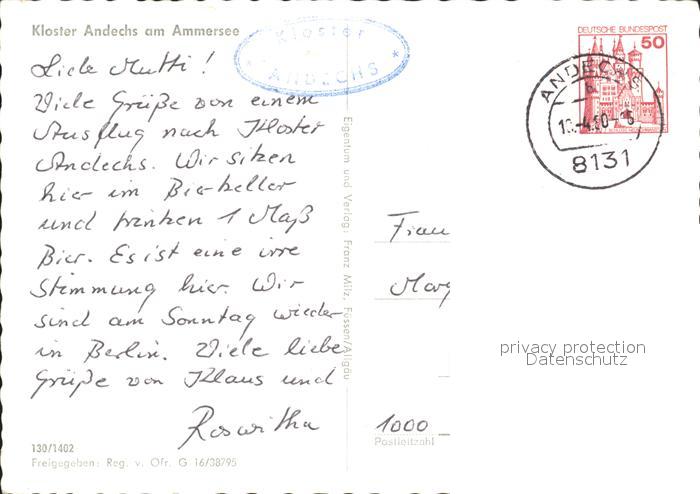 Kloster Andechs am Ammersee
Kloster
* ANDECHS *
Liebe Mutti!
Viele Grüße von einem
Ausflug nach Kloster
Andechs. Wir sitzen
hier im Bierkeller
und trinken 1 Maß
Bier. Es ist eine irre
Stimmung hier. Wir
sind am Sonntag wieder
in Berlin. Viele liebe
Grüße von Klaus und
Roswitha
130/1402
Freigegeben: Reg. v. Ofr. G 16/38795
Eigentum und Verlag: Franz Milz, Füssen/Allgäu
DEUTSCHE BUNDESPOST
50
ANDECHS
8131
Frau
1000
Postleitzahl
privacy protection
Datenschutz